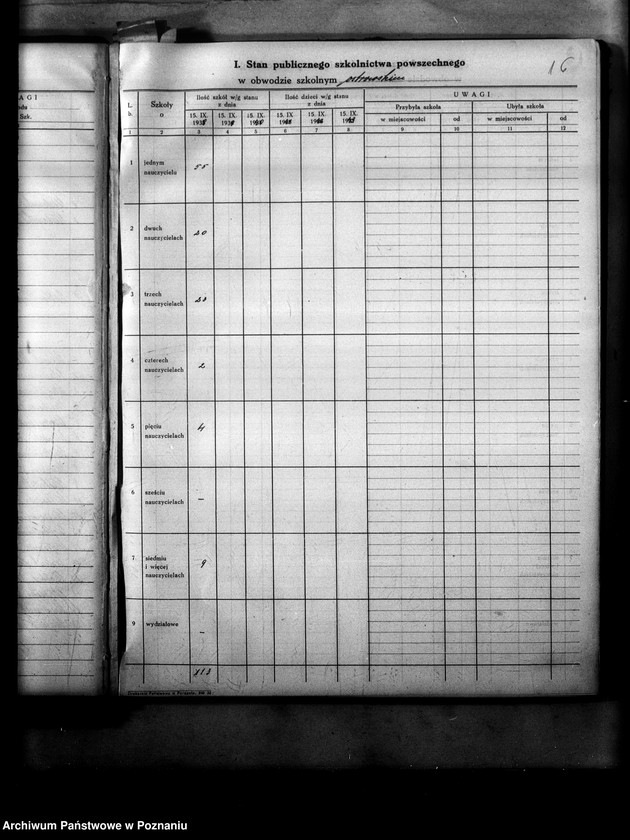 AGI
Szk.
16
I. Stan publicznego szkolnictwa powszechnego
w obwodzie szkolnym ostrowskim
L. b.
Szkoły o
Ilość szkół w/g stanu z dnia
Ilość dzieci w/g stanu z dnia
UWAGI
Przybyła szkoła
Ubyła szkoła
15. IX.
15. IX.
15. IX.
15. IX
15. IX
15. IX
w miejscowości
od
w miejscowości
od
1 2 3 4 5 6 7 8 9 10 11 12
1 jednym nauczycielu
2 dwuch nauczycielach 20
3 trzech nauczycielach
4 czterech nauczycielach 2
5 pięciu nauczycielach 4
6 sześciu nauczycielach –
7 siedmiu i więcej nauczycielach 9
9 wydziałowe –
Archiwum Państwowe w Poznaniu